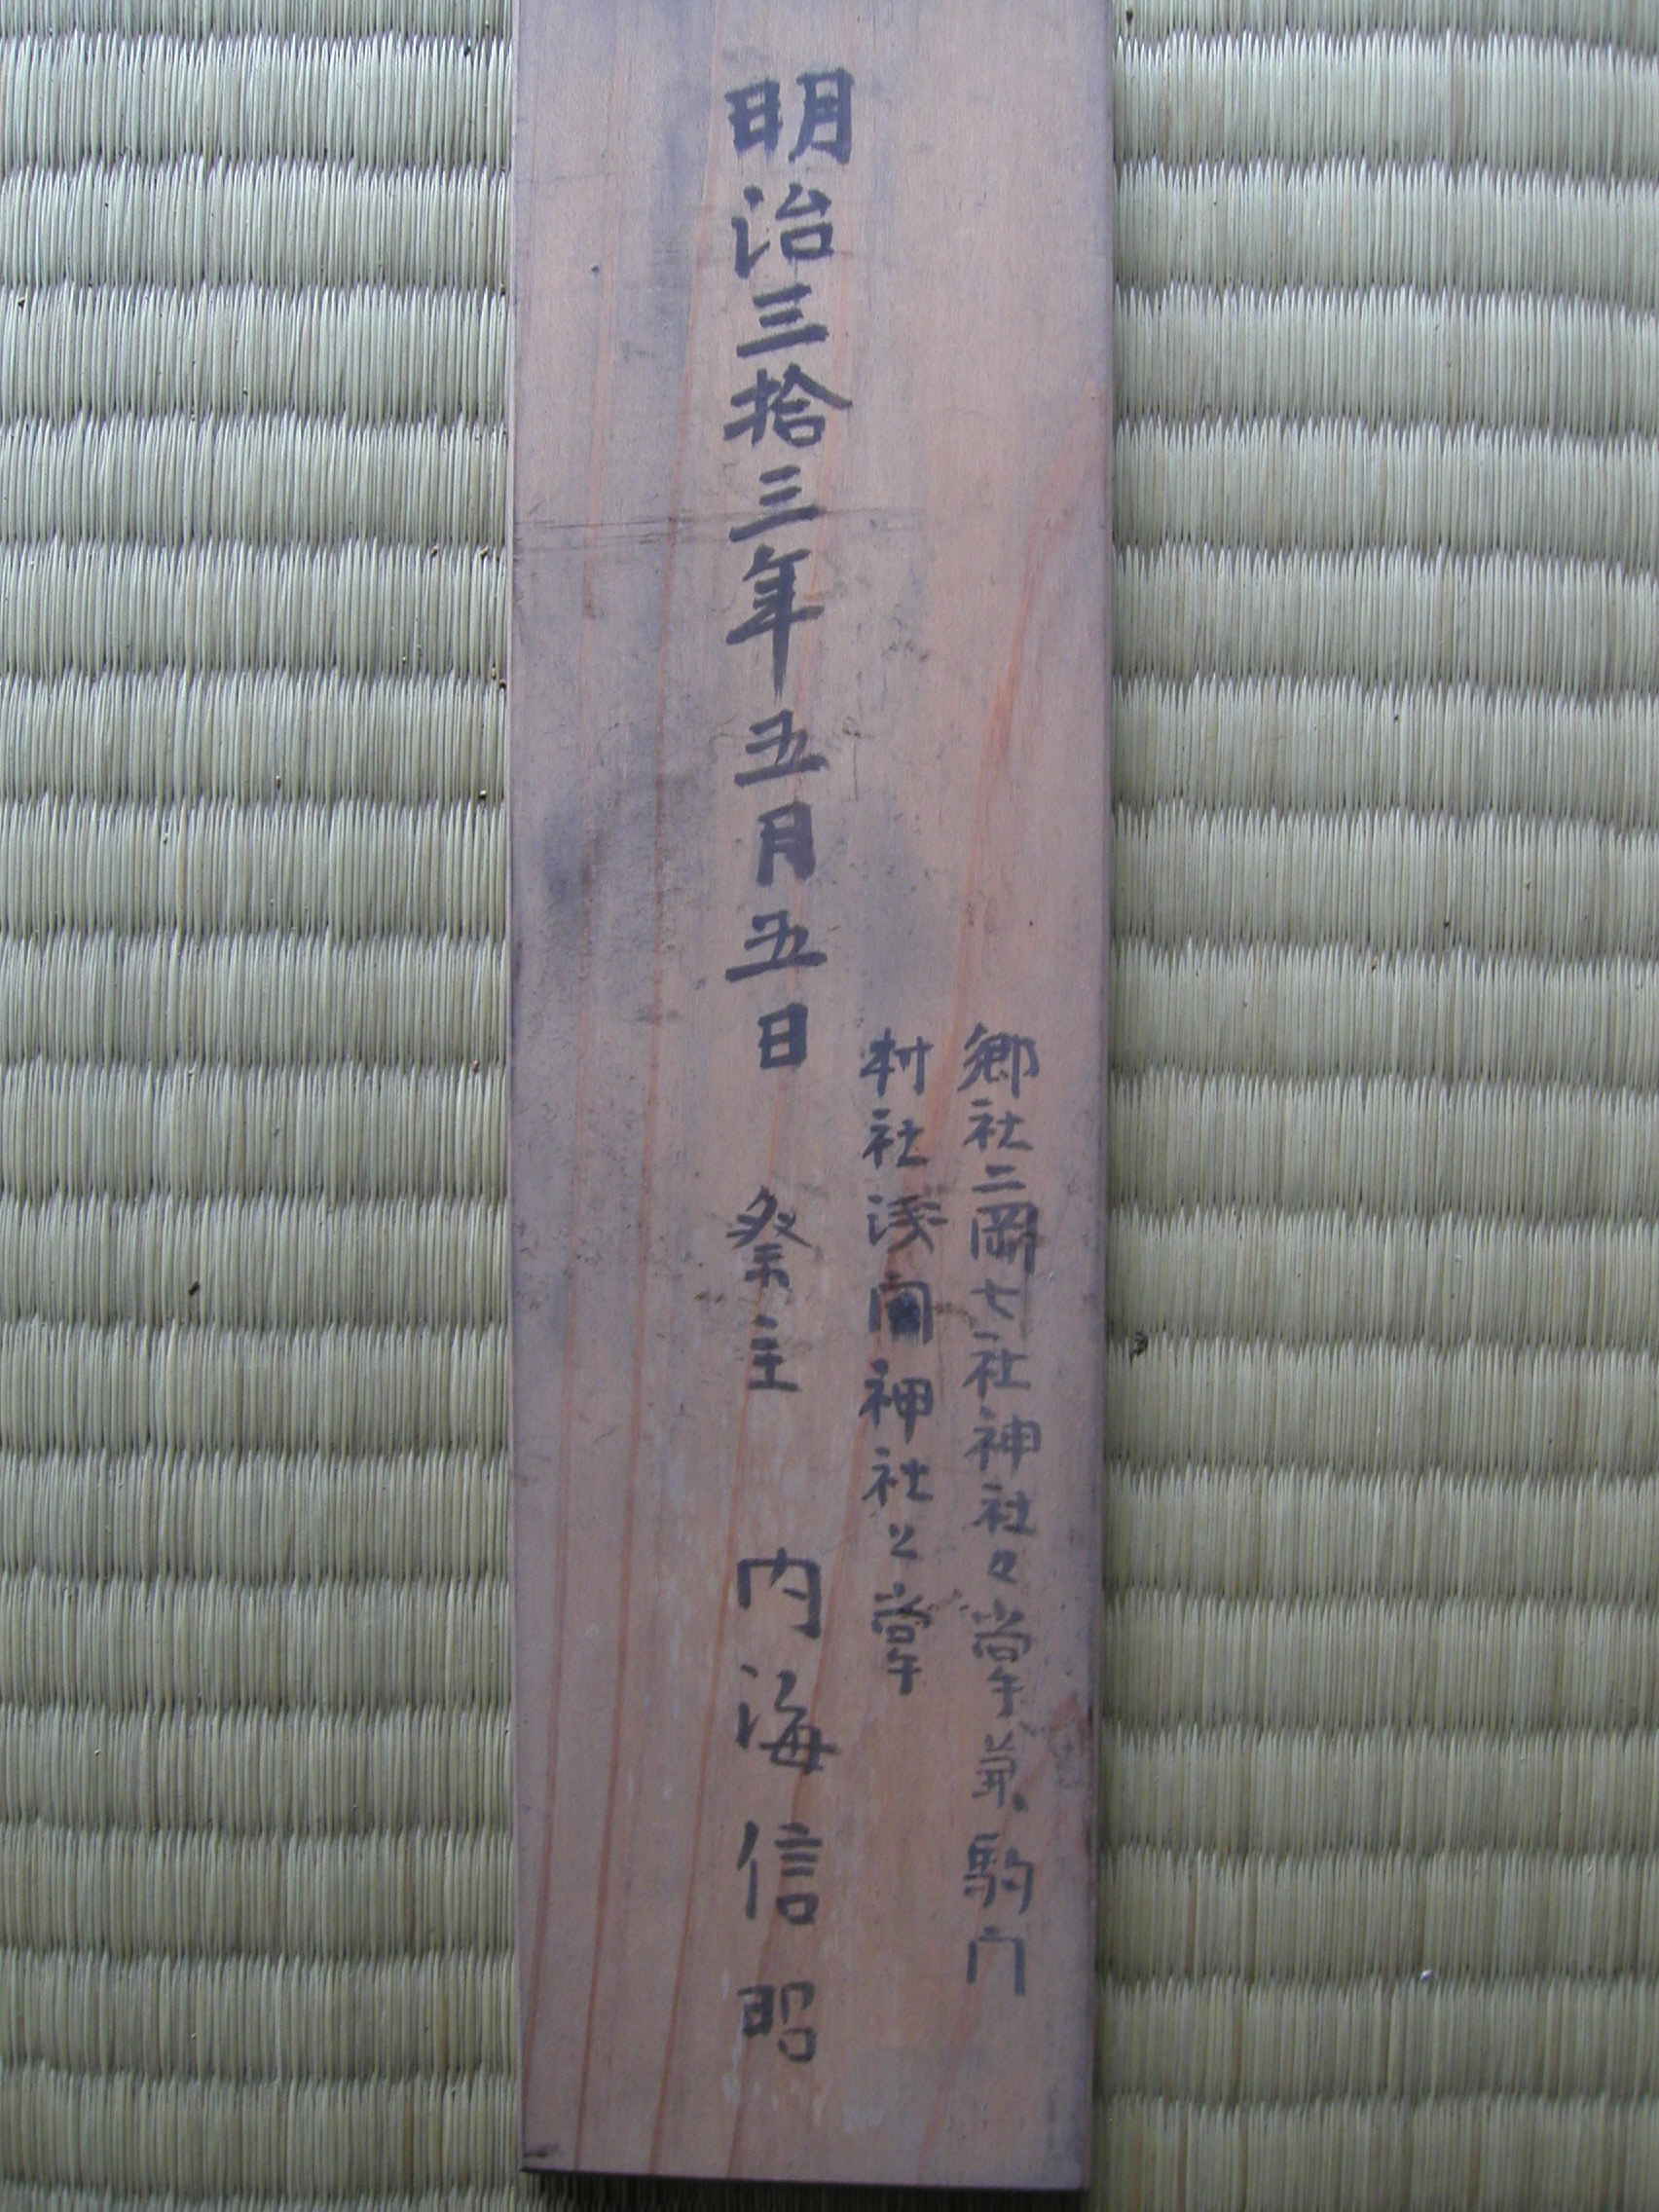 郷社二岡七社神社々掌兼駒門
村社浅間神社々掌
明治三拾三年五月五日 祭主 内海信昭